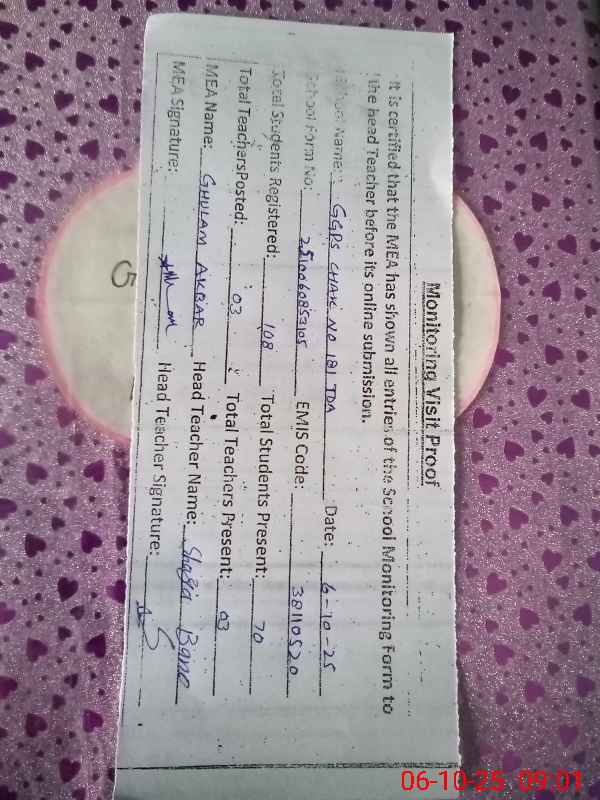 Monitoring Visit Proof
It is certified that the MEA has shown all entries of the School Monitoring Form to
the head Teacher before its online submission.
School Name: GGPS CHAK NO 181 TDA Date: 6-10-25
School Form No: 2510060853105 EMIS Code: 38110520
Total Students Registered: 108 Total Students Present: 70
Total TeachersPosted: 03 Total Teachers Present: 03
MEA Name: GHULAM AKBAR Head Teacher Name: Shazia Bano
MEA Signature: Head Teacher Signature:
06-10-25 09:01